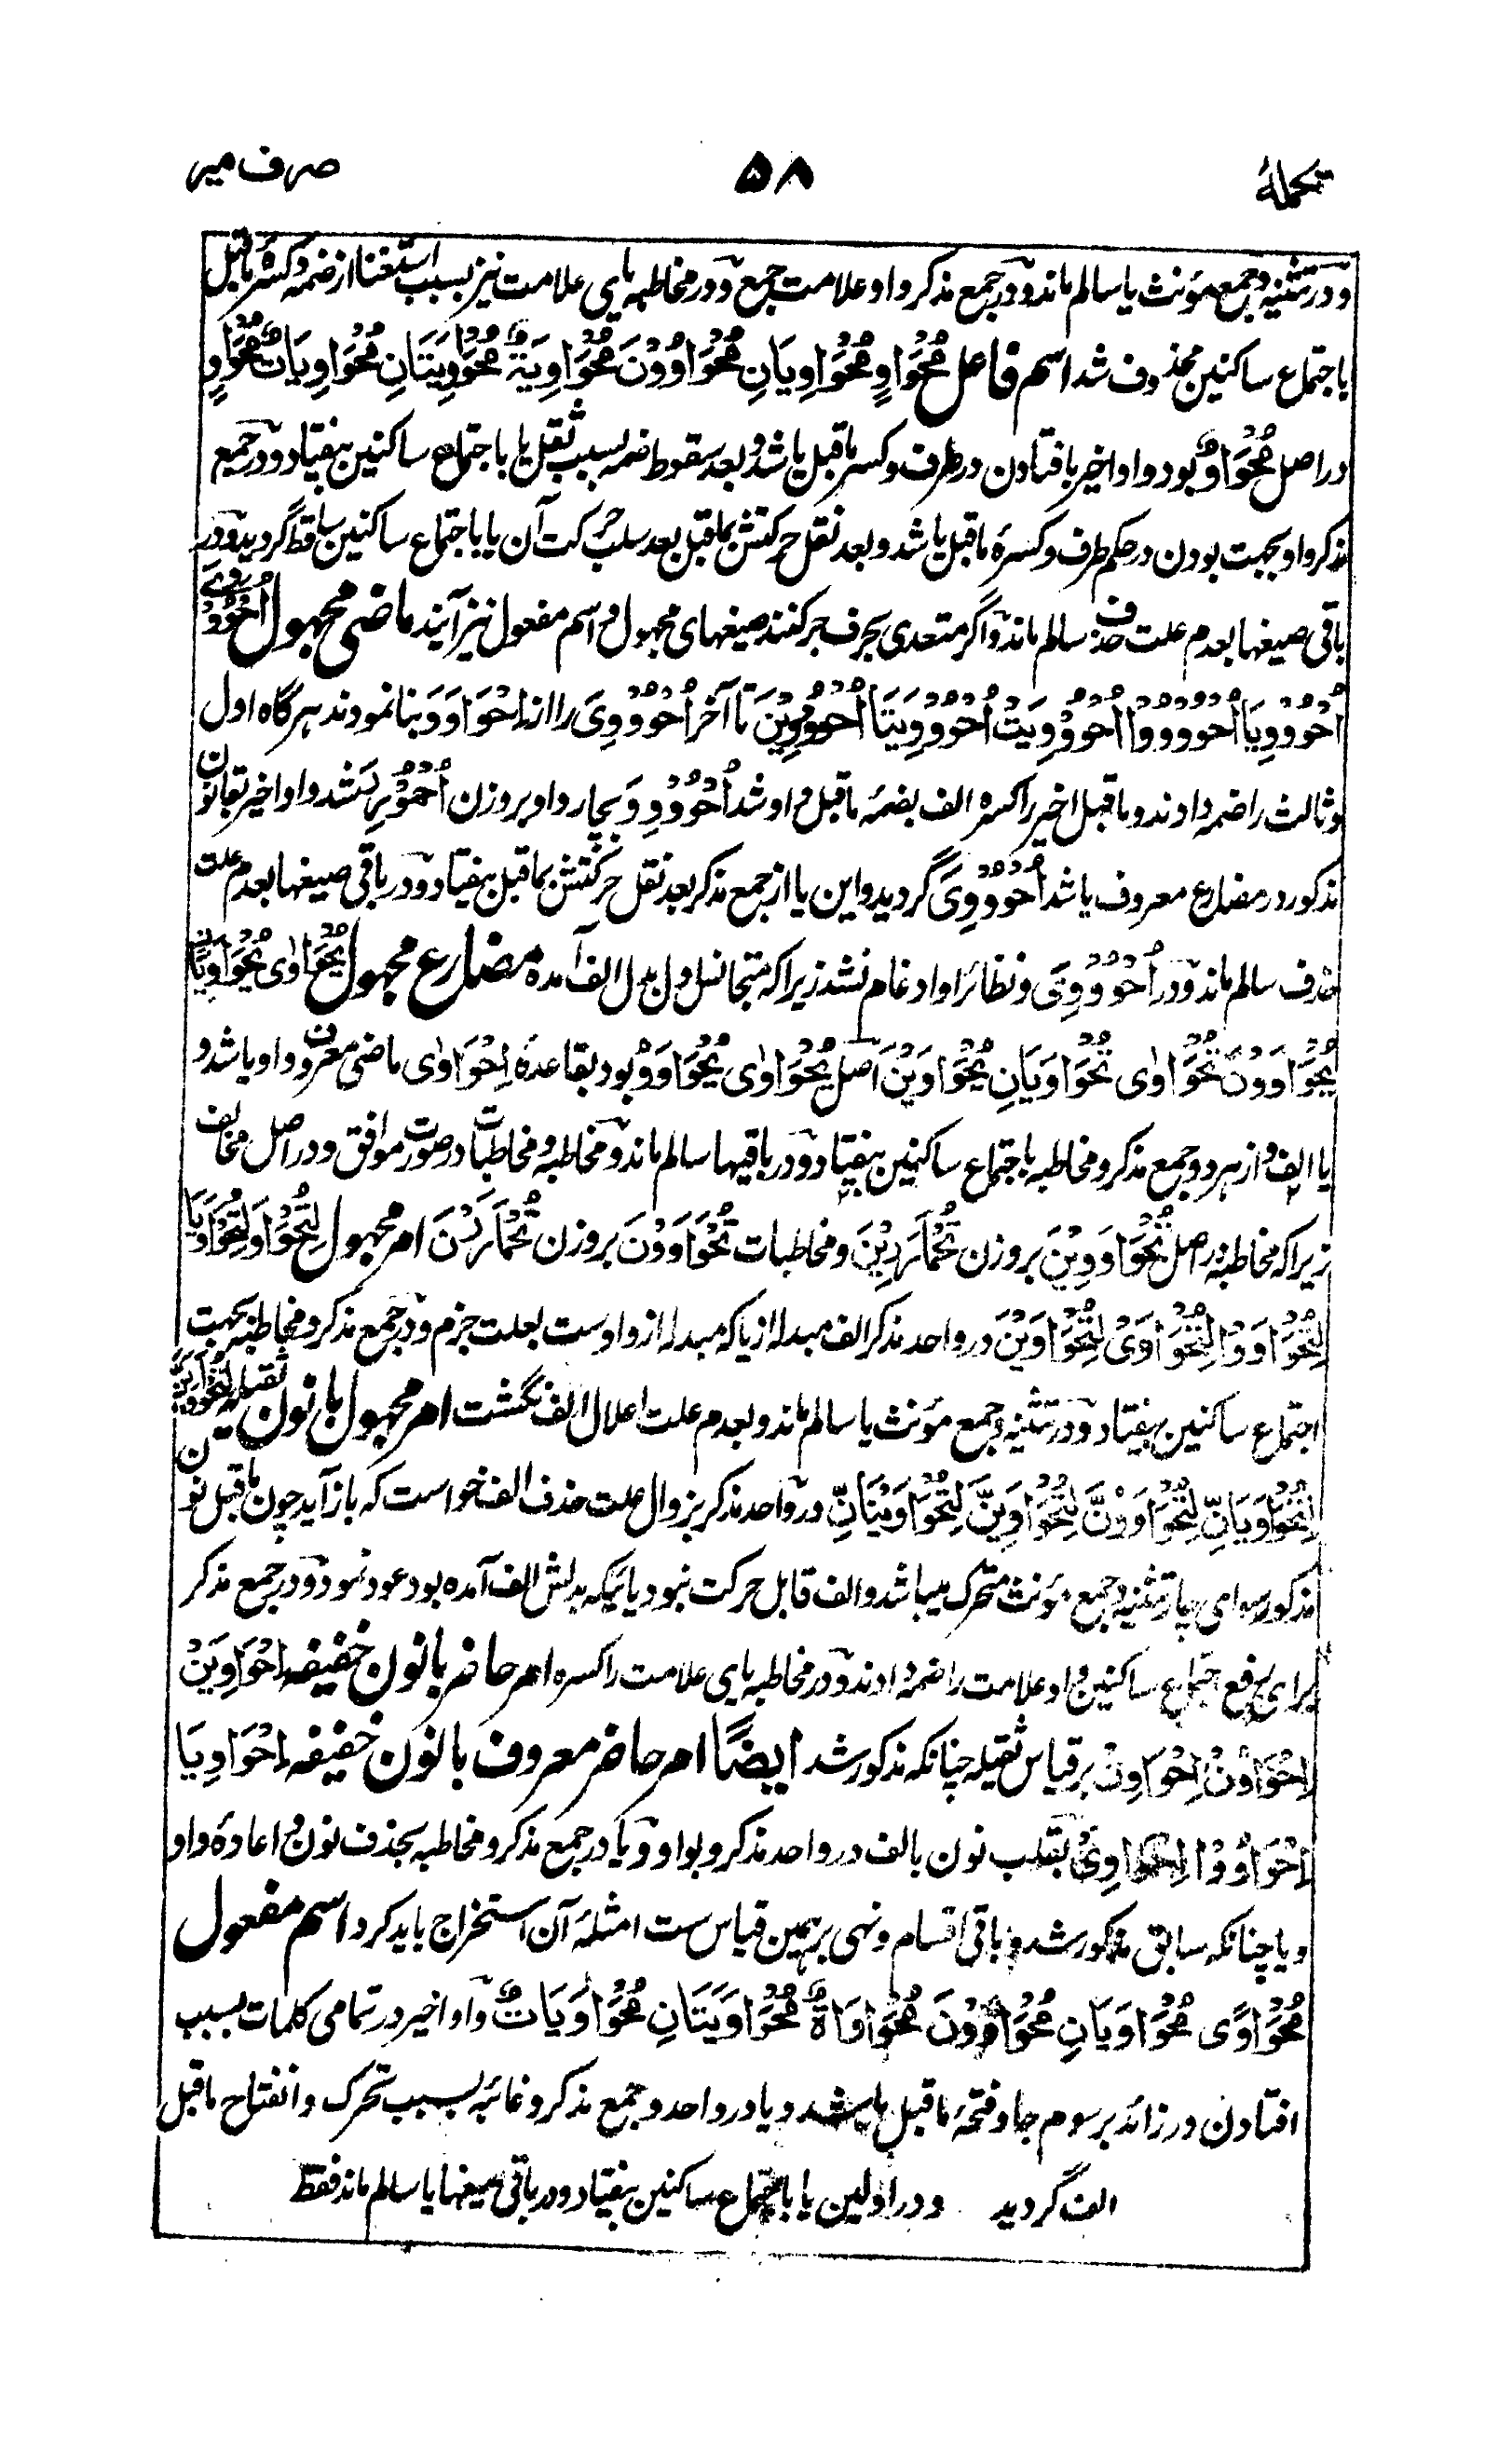 تکملهٔ ۵۸ صرف میر
و در تثنیه و جمع مؤنث یا سالم ماند و در جمع مذکر واو علامت جمع و در مخاطبه یای علامت نیز بسبب استغنا از ضمه و کسرهٔ ماقبل
باجتماع ساکنین محذوف شد اسم فاعل مُحْوَاوٍ مُحْوَاوِیَانِ مُحْوَاوُوْنَ مُحْوَاوِیَةٌ مُحْوَاوِیَتَانِ مُحْوَاوِیَاتٌ مُحْوَاوٍ
در اصل مُحْوَاوِوٌ بود واو اخیر بافتادن در طرف و کسر ماقبل یا شد و بعد سقوط ضمه بسبب ثقل یا باجتماع ساکنین بیفتاد و در جمع
مذکر واو بجهت بودن در حکم طرف و کسرهٔ ماقبل یا شد و بعد نقل حرکتش بماقبل بعد سلب حرکت آن یا باجتماع ساکنین ساقط گردید و در
باقی صیغها بعدم علت حذف سالم ماند و اگر متعدی بحرف جر کنند صیغهای مجهول و اسم مفعول نیز آیند ماضی مجهول اُحْوُوْوِیَ
اُحْوُوْوِیَا اُحْوُوْوُوْا اُحْوُوْوِیَتْ اُحْوُوْوِیَتَا اُحْوُوْوِیْنَ تا آخر اُحْوُوْوِیَ را از اِحْوَاوَوَ بنا نمودند هرگاه اول
و ثالث را ضمه دادند و ماقبل اخیر را کسره الف بضمهٔ ماقبل واو شد اُحْوُوْوِوَ بچار واو بروزن اُحْمُوْرِرَ شد واو اخیر بقانون
مذکور در مضارع معروف یا شد اُحْوُوْوِیَ گردید و این یا از جمع مذکر بعد نقل حرکتش بماقبل بیفتاد و در باقی صیغها بعدم علت
حذف سالم ماند و در اُحْوُوْوِیَ و نظائر او ادغام نشد زیرا که متجانس اول بدل الف آمده مضارع مجهول یُحْوَاوٰی یُحْوَاوَیَانِ
یُحْوَاوَوْنَ تُحْوَاوٰی تُحْوَاوَیَانِ یُحْوَاوَیْنَ اصل یُحْوَاوٰی یُحْوَاوَوُ بود بقاعدهٔ اِحْوَاوٰی ماضی معروف واو یا شد و
یا الف و از هر دو جمع مذکر و مخاطبه باجتماع ساکنین بیفتاد و در باقیها سالم ماند و مخاطبه و مخاطبات در صورت موافق و در اصل مخالف
زیرا که مخاطبه در اصل تُحْوَاوَوِیْنَ بروزن تُحْمَارَرِیْنَ و مخاطبات تُحْوَاوَوْنَ بروزن تُحْمَارَرْنَ امر مجهول لِتُحْوَاوَ لِتُحْوَاوَیَا
لِتُحْوَاوَوْا لِتُحْوَاوَیْ لِتُحْوَاوَیْنَ در واحد مذکر الف مبدله از یا که مبدله از واوست بعلت جزم و در جمع مذکر و مخاطبه بجهت
اجتماع ساکنین بیفتاد و در تثنیه و جمع مؤنث یا سالم ماند و بعدم علت اعلال الف نگشت امر مجهول با نون ثقیله لِتُحْوَاوَیَنَّ
لِتُحْوَاوَیَانِّ لِتُحْوَاوَوُنَّ لِتُحْوَاوَیِنَّ لِتُحْوَاوَیْنَانِّ در واحد مذکر بزوال علت حذف الف خواست که باز آید چون ماقبل نون
مذکور سوای چار تثنیه و جمع مؤنث متحرک میباشد و الف قابل حرکت نبود یائیکه بدلش الف آمده بود عود نمود و در جمع مذکر
برای رفع اجتماع ساکنین واو علامت را ضمه دادند و در مخاطبه یای علامت را کسره امر حاضر با نون خفیفه اِحْوَاوِیَنْ
اِحْوَاوُنْ اِحْوَاوِنْ بر قیاس ثقیله چنانکه مذکور شد ایضًا امر حاضر معروف با نون خفیفه اِحْوَاوِیَا
اِحْوَاوُوْا اِحْوَاوِیْ بقلب نون بالف در واحد مذکر و بواو و یا در جمع مذکر و مخاطبه بحذف نون و اعادهٔ واو
و یا چنانکه سابق مذکور شد و باقی اقسام و نهی بر همین قیاس ست امثلهٔ آن استخراج باید کرد اسم مفعول
مُحْوَاوًی مُحْوَاوَیَانِ مُحْوَاوَوْنَ مُحْوَاوَاةٌ مُحْوَاوَیَتَانِ مُحْوَاوَیَاتٌ واو اخیر در تمامی کلمات بسبب
افتادن در زائد بر سوم جا و فتحهٔ ماقبل یا شد و یا در واحد و جمع مذکر و غائبه بسبب تحرک و انفتاح ماقبل
الف گردید و در اولین یا باجتماع ساکنین بیفتاد و در باقی صیغها یا سالم ماند فقط